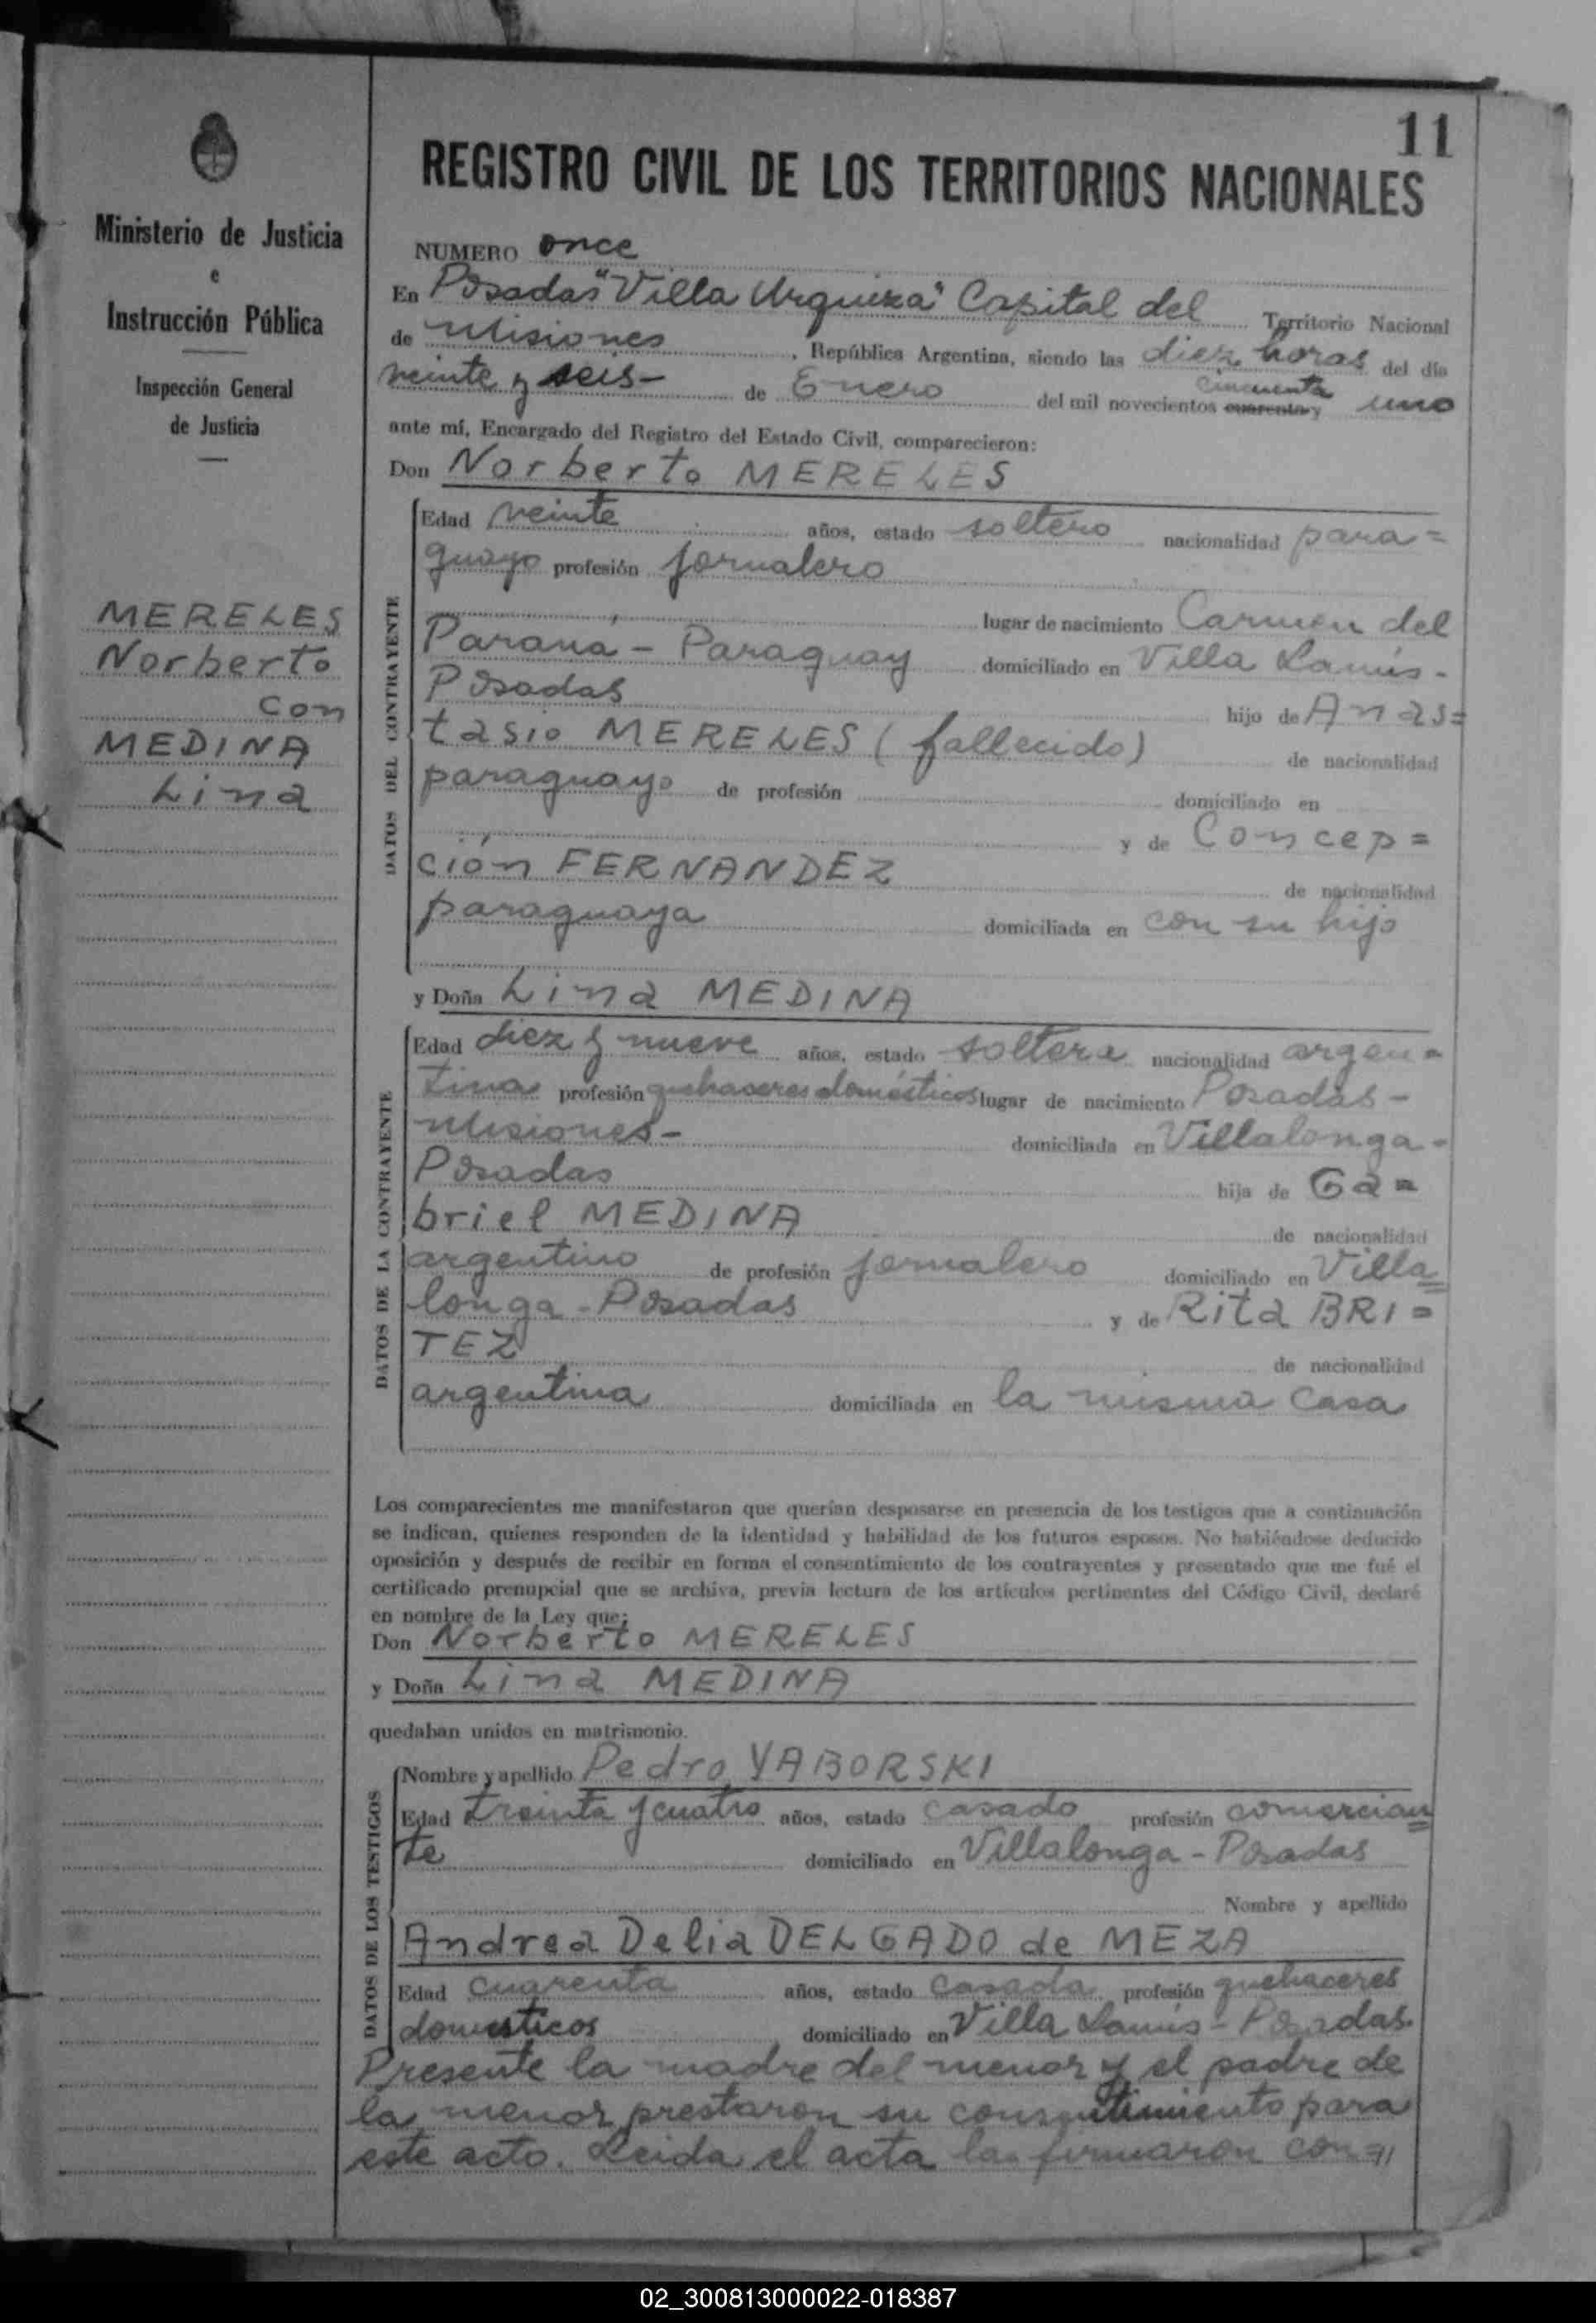 11
Ministerio de Justicia
e
Instrucción Pública
Inspección General
de Justicia
MERELES
Norberto
con
MEDINA
Lina
REGISTRO CIVIL DE LOS TERRITORIOS NACIONALES
NUMERO once
En Posadas "Villa Urquiza" Capital del Territorio Nacional
de Misiones, República Argentina, siendo las diez horas del día
veinte y seis- de Enero del mil novecientos cuarenta y cincuenta uno
ante mí, Encargado del Registro del Estado Civil, comparecieron:
Don Norberto MERELES
DATOS DEL CONTRAYENTE
Edad veinte años, estado soltero nacionalidad para=
guayo profesión jornalero
lugar de nacimiento Carmen del
Paraná - Paraguay domiciliado en Villa Lanús-
Posadas hijo de Anas=
tasio MERELES (fallecido) de nacionalidad
paraguayo de profesión domiciliado en
y de Concep=
ción FERNANDEZ de nacionalidad
paraguaya domiciliada en con su hijo
y Doña Lina MEDINA
DATOS DE LA CONTRAYENTE
Edad diez y nueve años, estado soltera nacionalidad argen=
tina profesión quehaceres domésticos lugar de nacimiento Posadas-
Misiones- domiciliada en Villalonga-
Posadas hija de Ga=
briel MEDINA de nacionalidad
argentino de profesión jornalero domiciliado en Villa=
longa-Posadas y de Rita BRI=
TEZ de nacionalidad
argentina domiciliada en la misma casa
Los comparecientes me manifestaron que querían desposarse en presencia de los testigos que a continuación
se indican, quienes responden de la identidad y habilidad de los futuros esposos. No habiéndose deducido
oposición y después de recibir en forma el consentimiento de los contrayentes y presentado que me fué el
certificado prenupcial que se archiva, previa lectura de los artículos pertinentes del Código Civil, declaré
en nombre de la Ley que:
Don Norberto MERELES
y Doña Lina MEDINA
quedaban unidos en matrimonio.
DATOS DE LOS TESTIGOS
Nombre y apellido Pedro YABORSKI
Edad treinta y cuatro años, estado casado profesión comercian=
te domiciliado en Villalonga-Posadas
Nombre y apellido
Andrea Delia DELGADO de MEZA
Edad cuarenta años, estado casada profesión quehaceres
domésticos domiciliado en Villa Lanús-Posadas.
Presente la madre del menor y el padre de
la menor prestaron su consentimiento para
este acto. Leida el acta la firmaron con=//
02_300813000022-018387